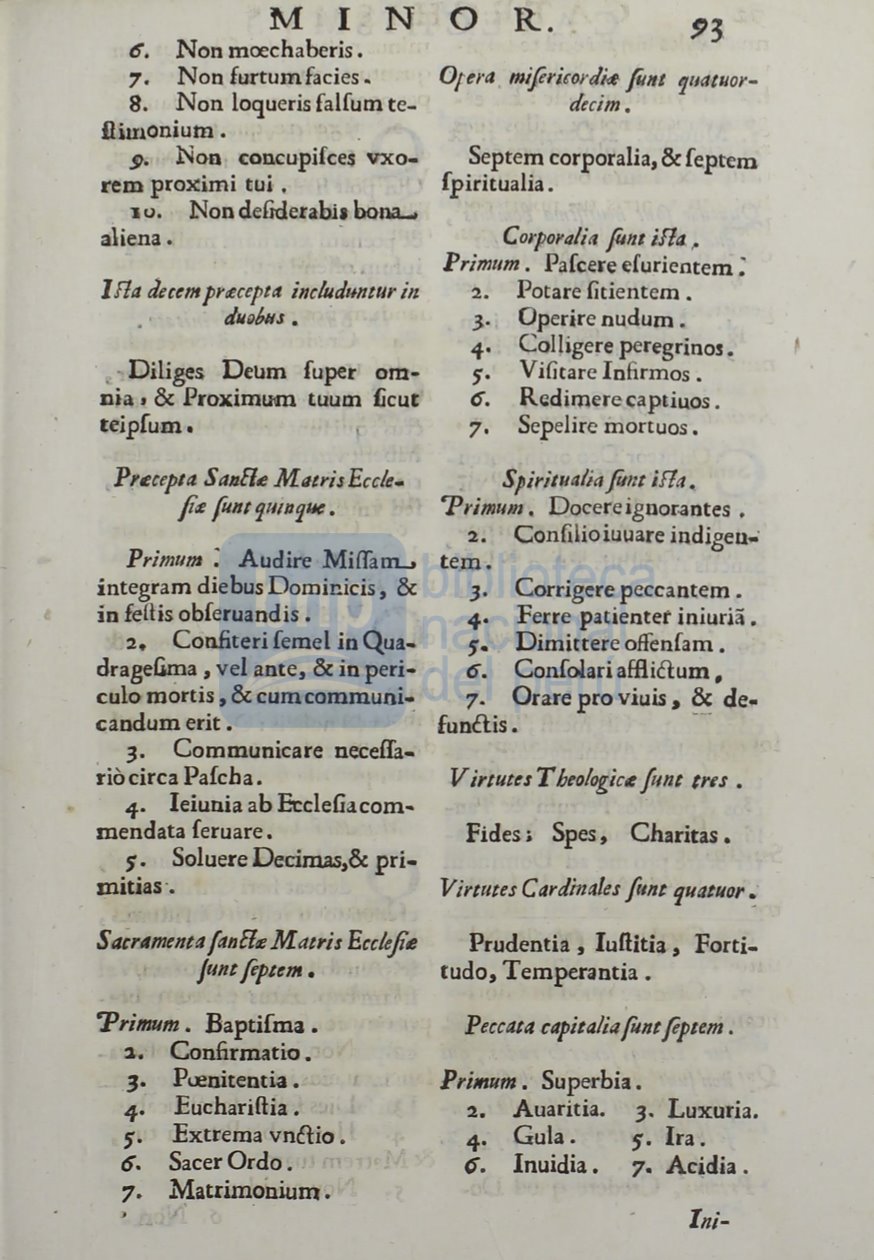 MINOR. 93
6. Non mœchaberis.
7. Non furtum facies.
8. Non loqueris falſum te-
ſtimonium.
9. Non concupiſces vxo-
rem proximi tui.
10. Non deſiderabis bona
aliena.
Iſta decem præcepta includuntur in
duobus.
Diliges Deum ſuper om-
nia, & Proximum tuum ſicut
teipſum.
Præcepta Sanctæ Matris Eccle-
ſiæ ſunt quinque.
Primum. Audire Miſſam
integram diebus Dominicis, &
in feſtis obſeruandis.
2. Confiteri ſemel in Qua-
drageſima, vel ante, & in peri-
culo mortis, & cum communi-
candum erit.
3. Communicare neceſſa-
riò circa Paſcha.
4. Ieiunia ab Eccleſia com-
mendata ſeruare.
5. Soluere Decimas, & pri-
mitias.
Sacramenta ſanctæ Matris Eccleſiæ
ſunt ſeptem.
Primum. Baptiſma.
2. Confirmatio.
3. Pœnitentia.
4. Euchariſtia.
5. Extrema vnctio.
6. Sacer Ordo.
7. Matrimonium.
Opera miſericordiæ ſunt quatuor-
decim.
Septem corporalia, & ſeptem
ſpiritualia.
Corporalia ſunt iſta.
Primum. Paſcere eſurientem.
2. Potare ſitientem.
3. Operire nudum.
4. Colligere peregrinos.
5. Viſitare Infirmos.
6. Redimere captiuos.
7. Sepelire mortuos.
Spiritualia ſunt iſta.
Primum. Docere ignorantes.
2. Conſilio iuuare indigen-
tem.
3. Corrigere peccantem.
4. Ferre patienter iniuriã.
5. Dimittere offenſam.
6. Conſolari afflictum,
7. Orare pro viuis, & de-
functis.
Virtutes Theologicæ ſunt tres.
Fides; Spes, Charitas.
Virtutes Cardinales ſunt quatuor.
Prudentia, Iuſtitia, Forti-
tudo, Temperantia.
Peccata capitalia ſunt ſeptem.
Primum. Superbia.
2. Auaritia. 3. Luxuria.
4. Gula. 5. Ira.
6. Inuidia. 7. Acidia.
Ini-
biblioteca
nac
del